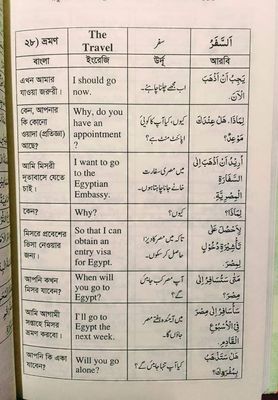 ২৮) ভ্রমণ
The
Travel
سفر
اَلسَّفَرُ
বাংলা
ইংরেজি
উর্দু
আরবি
এখন আমার
যাওয়া জরুরী।
I should go
now.
اب مجھے چلنا چاہئے۔
يَجِبُ أَنْ أَذْهَبَ
الْآنَ.
কেন, আপনার
কি কোনো
ওয়াদা (প্রতিজ্ঞা)
আছে?
Why, do you
have an
appointment
?
کیوں، کیا آپ کا کوئی
اپائنٹ منٹ ہے؟
لِمَاذَا. هَلْ عِنْدَكَ
مَوْعِدٌ؟
আমি মিসরী
দূতাবাসে যেতে
চাই।
I want to go
to the
Egyptian
Embassy.
میں مصری سفارت
خانے جانا چاہتا ہوں۔
أُرِيْدُ أَنْ أَذْهَبَ إِلَى
السِّفَارَةِ
الْمِصْرِيَّةِ.
কেন?
Why?
کیوں؟
لِمَاذَا؟
মিসরে প্রবেশের
ভিসা নেওয়ার
জন্য।
So that I can
obtain an
entry visa
for Egypt.
تاکہ میں مصر کا ویزا
حاصل کر سکوں۔
لِأَحْصُلَ عَلَى
تَأْشِيْرَةِ دُخُوْلٍ
لِمِصْرَ.
আপনি কখন
মিসর যাবেন?
When will
you go to
Egypt?
آپ مصر کب جائیں
گے؟
مَتَى سَتُسَافِرُ إِلَى
مِصْرَ؟
আমি আগামী
সপ্তাহে মিসর
ভ্রমণ করবো।
I'll go to
Egypt the
next week.
میں آئندہ ہفتے مصر
جاؤں گا۔
سَأُسَافِرُ إِلَى مِصْرَ
فِي الْأُسْبُوْعِ
الْقَادِمِ.
আপনি কি একা
যাবেন?
Will you go
alone?
کیا آپ تنہا جائیں گے؟
هَلْ سَتَذْهَبُ
بِمُفْرَدِكَ؟